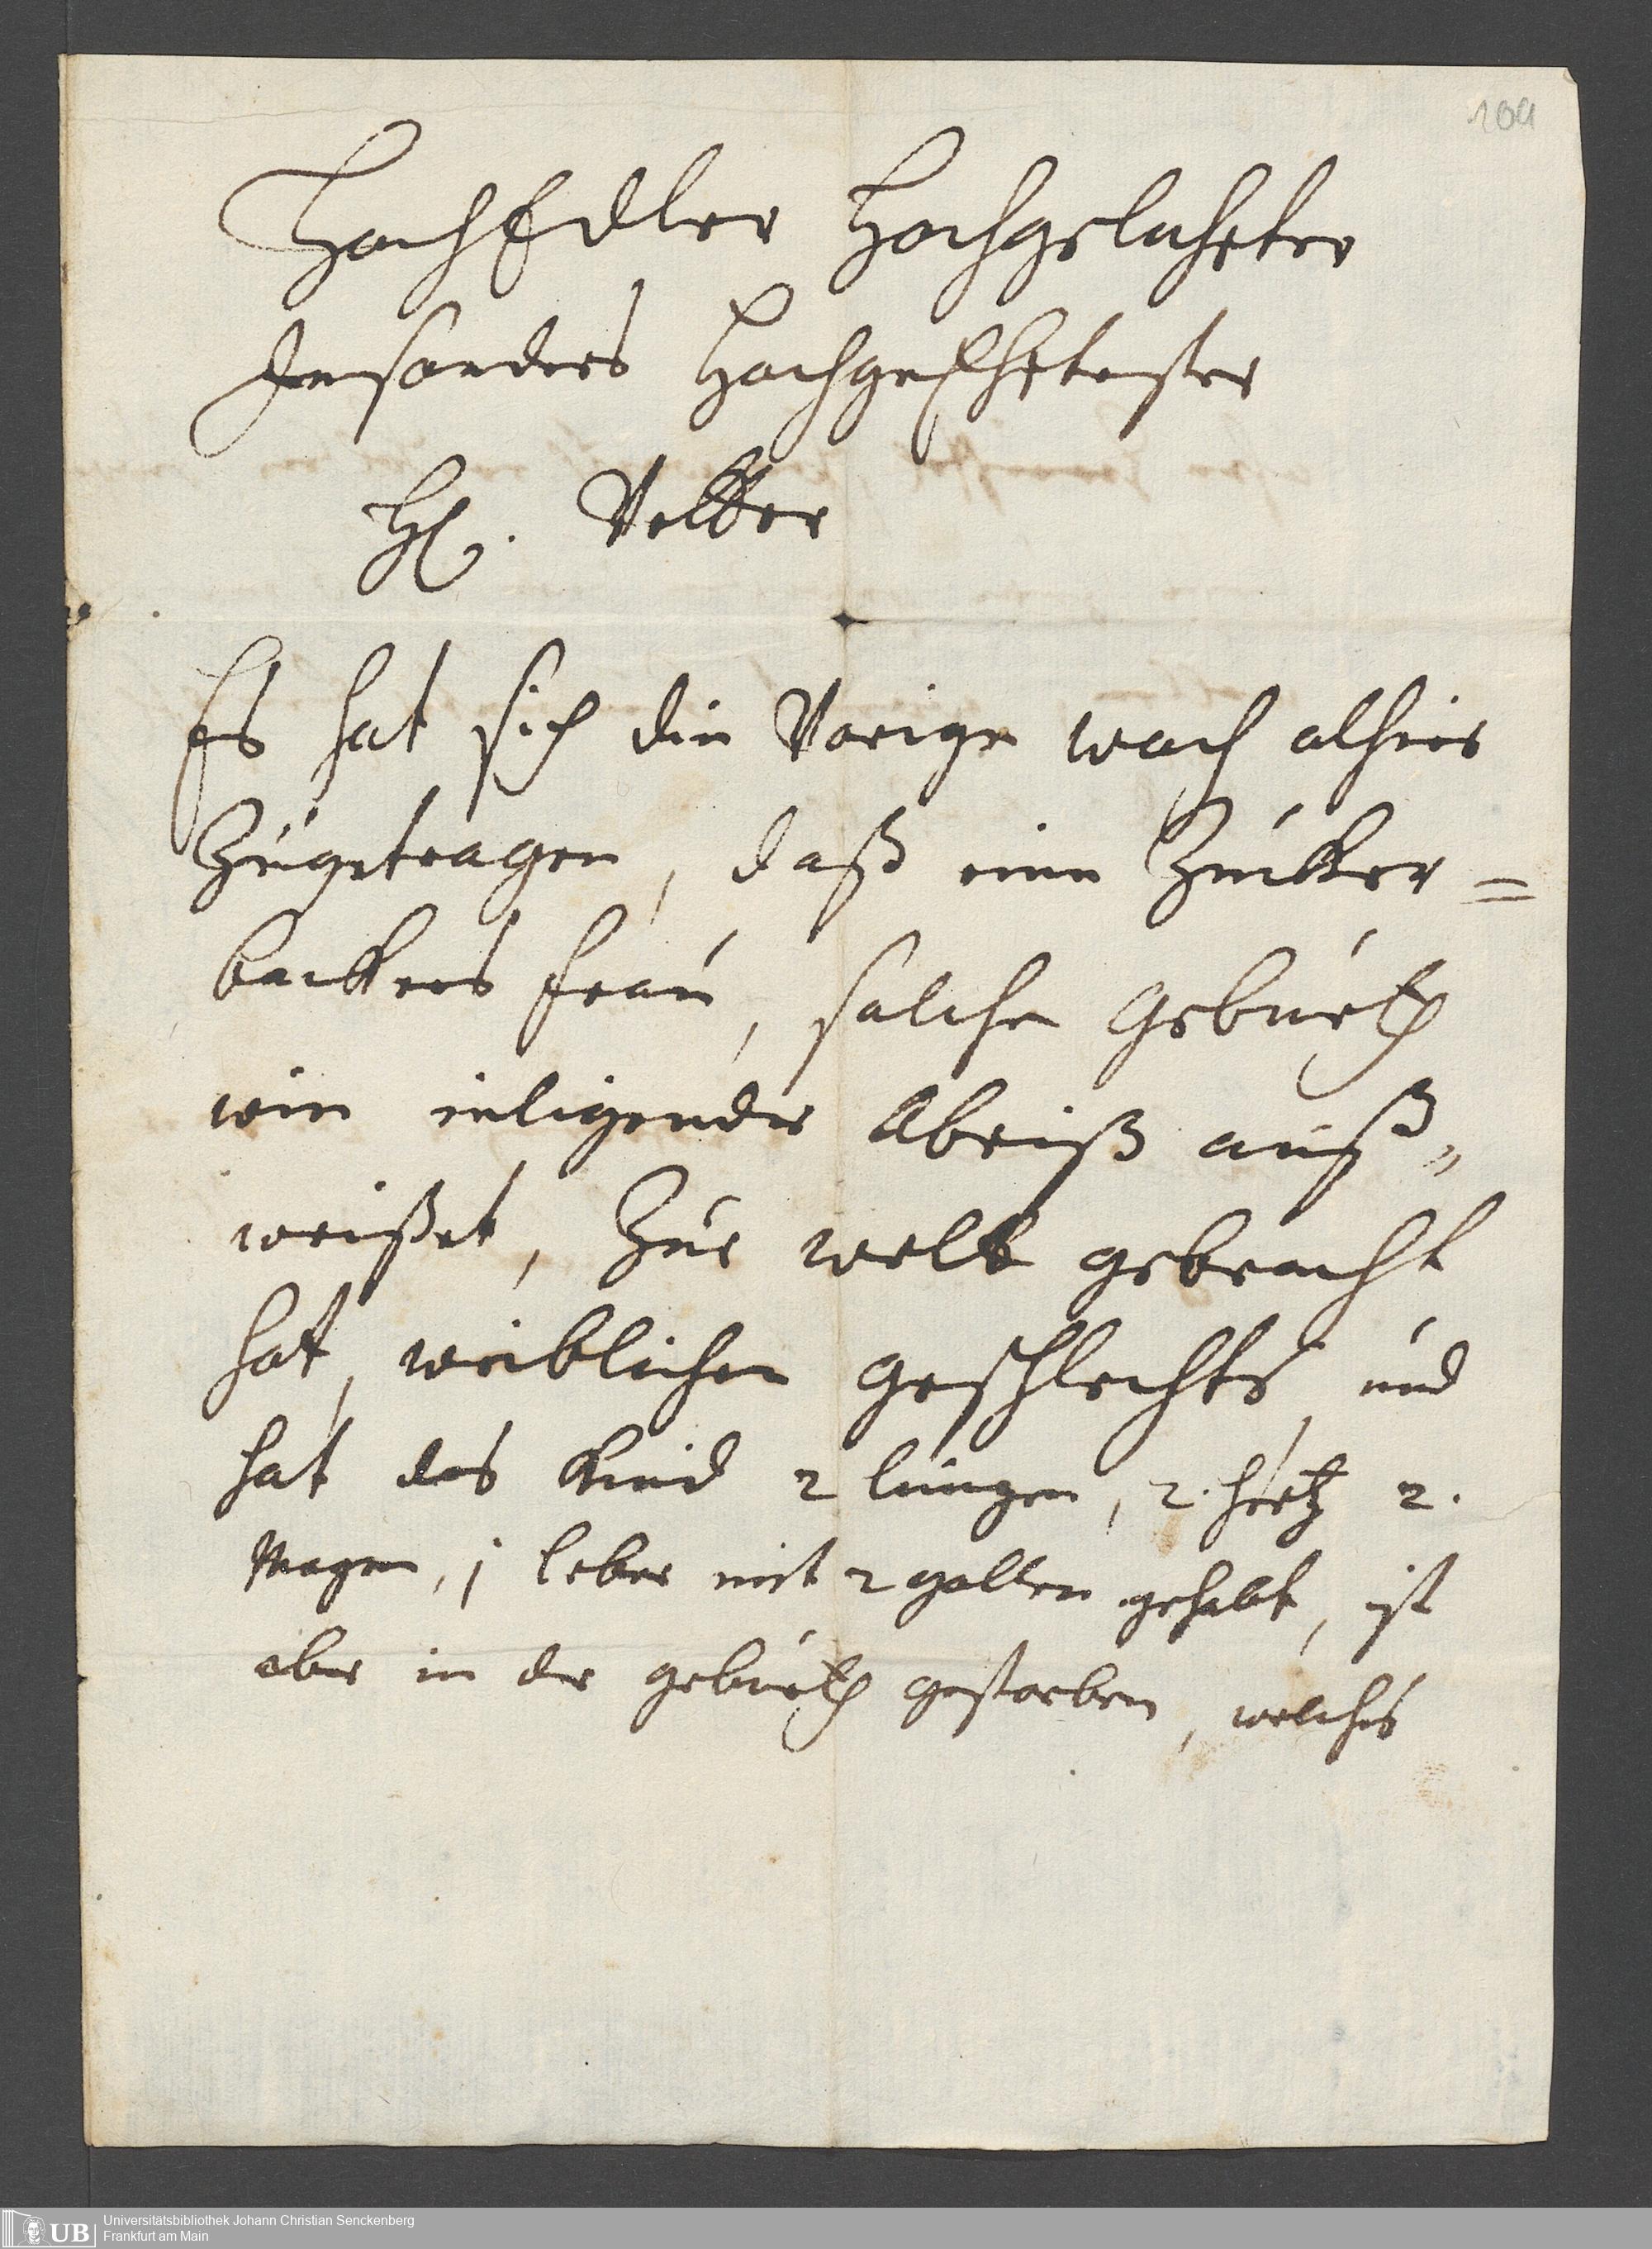 104
HochEdler Hochgelahrter
Insonders HochgeEhrtester
H. Vetter
Es hat sich die Vorige woch alhier
Zugetragen, daß eine Zucker=
backers frau, solche Geburth
wie inligender Abriß auß„
weißet, Zur welt gebracht
hat, weiblichen geschlechts, und
hat das Kind 2 lungen, 2. hertz 2.
Magen, j leber mit 2 gallen gehabt, ist
aber in der geburth gestorben, welches
UB
Universitätsbibliothek Johann Christian Senckenberg
Frankfurt am Main